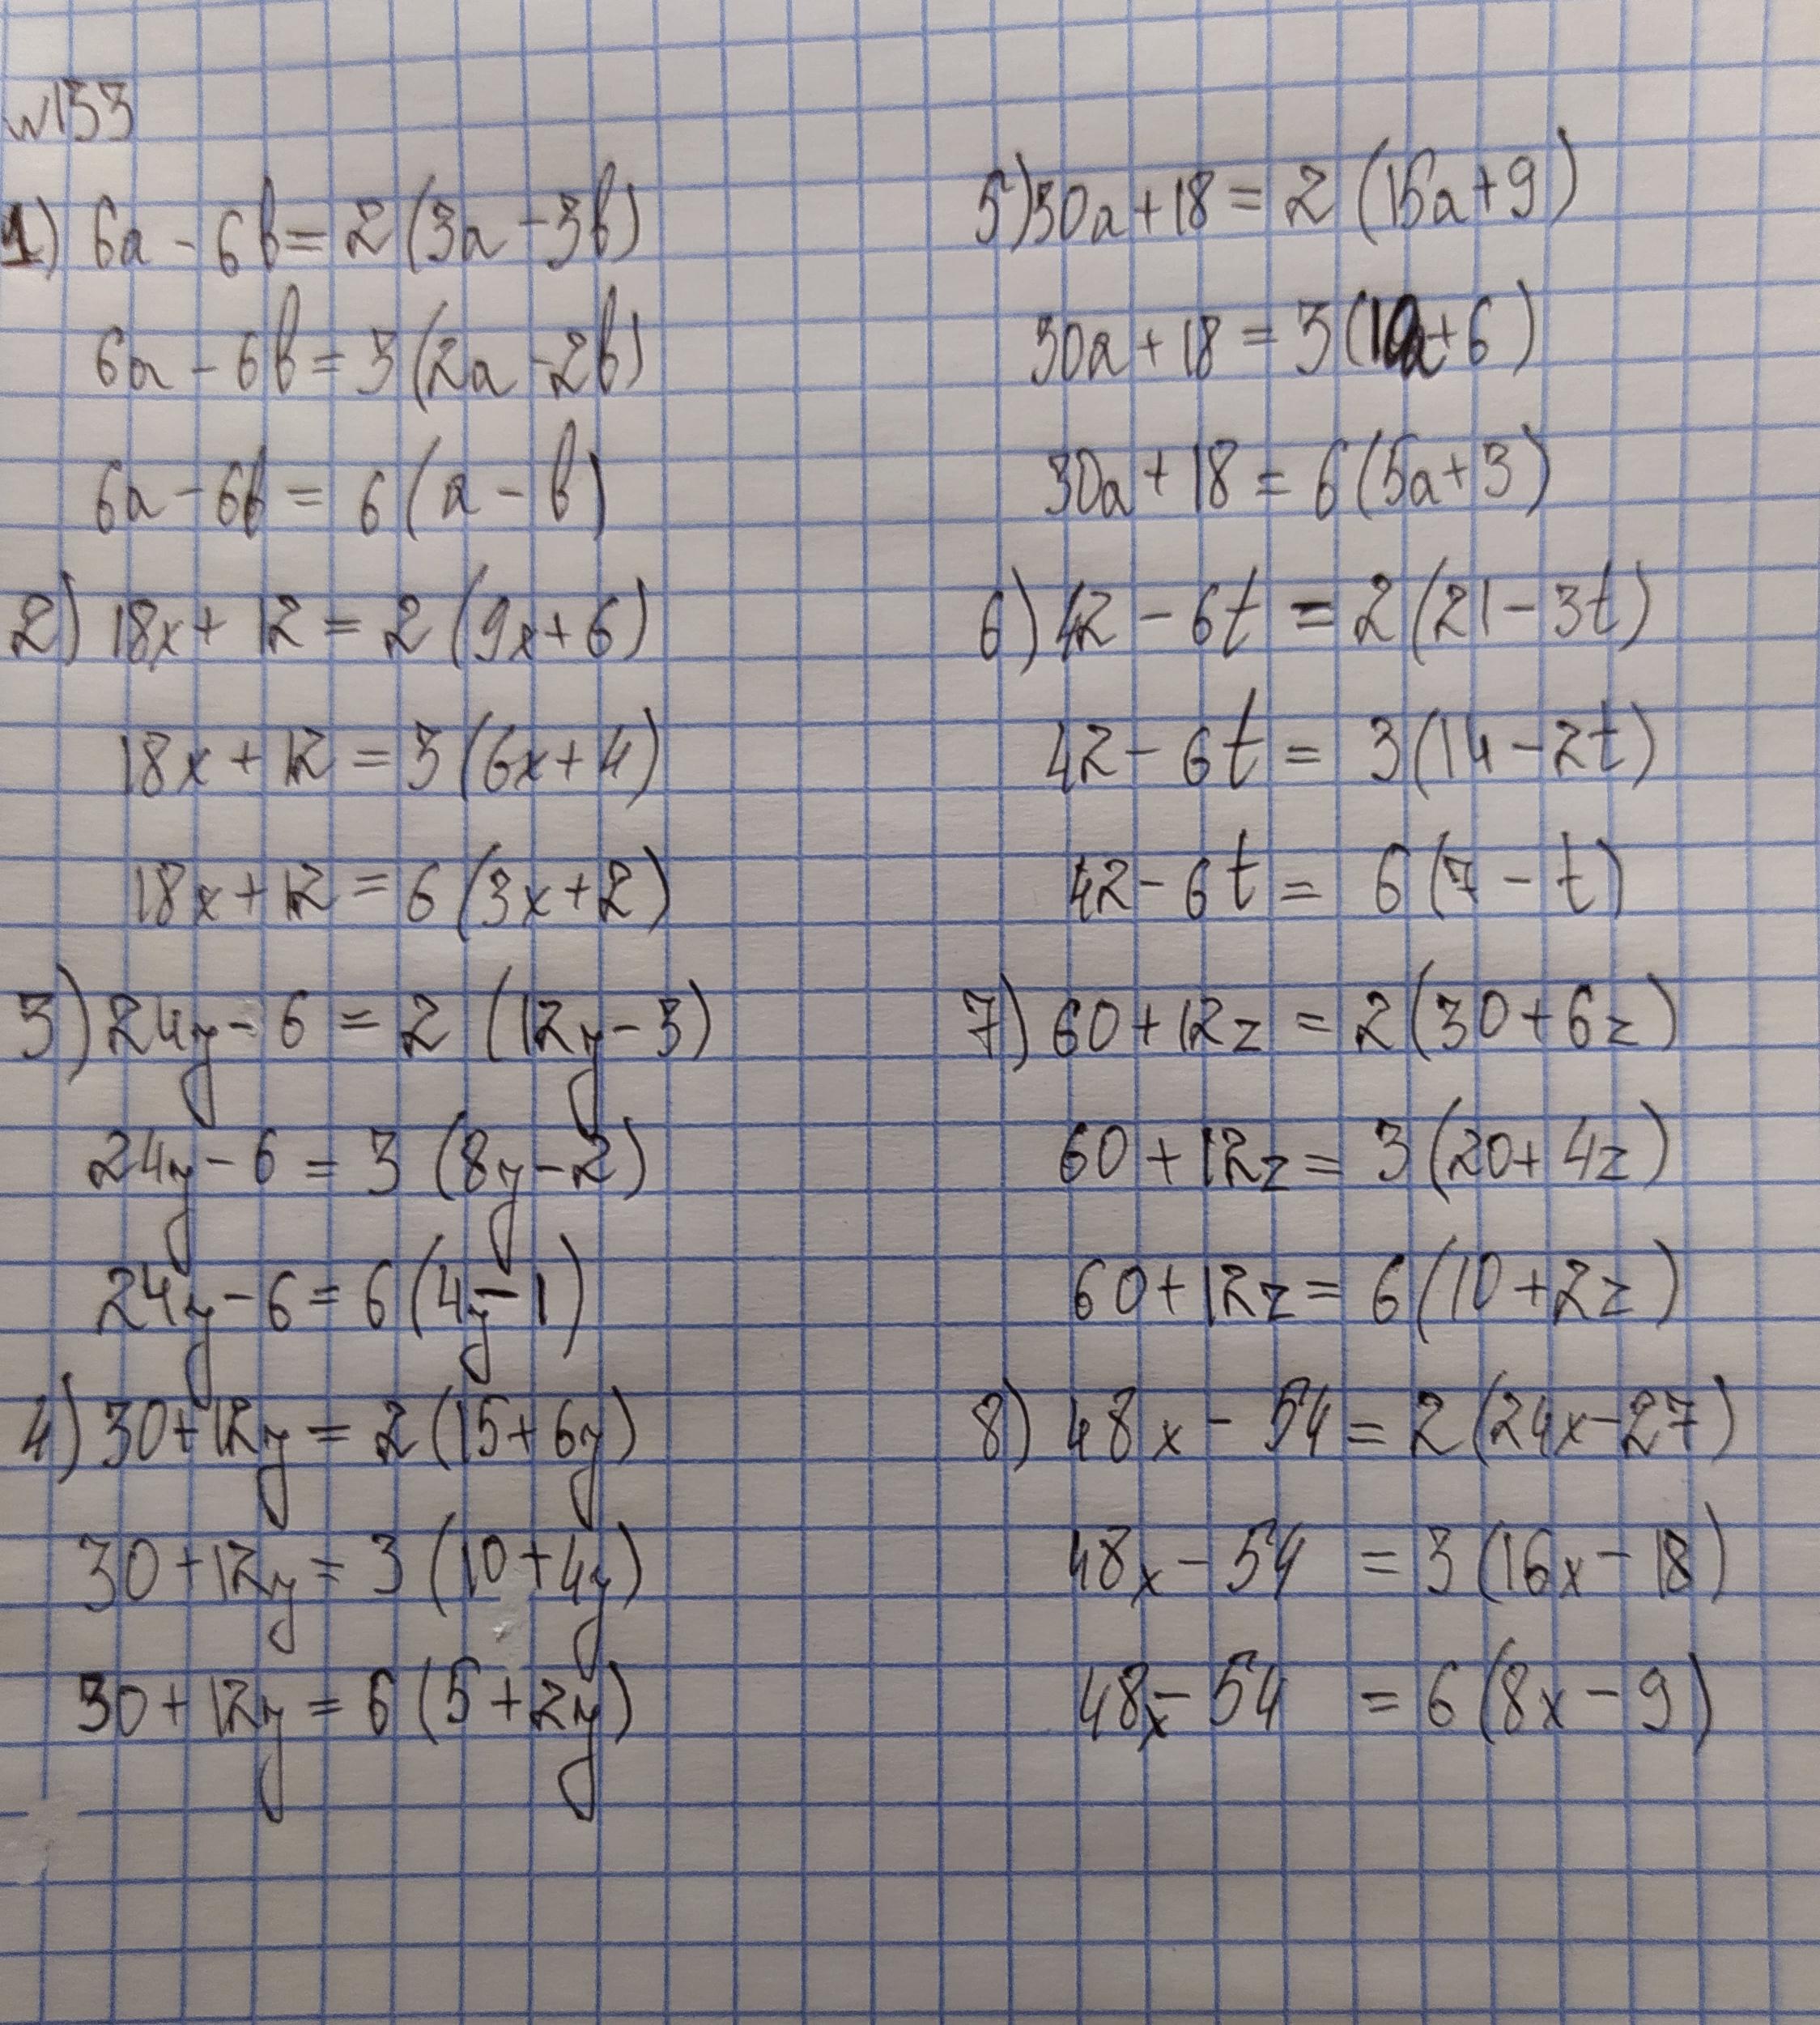 №153
1) 6a - 6b = 2 (3a - 3b)
6a - 6b = 3 (2a - 2b)
6a - 6b = 6 (a - b)
2) 18x + 12 = 2 (9x + 6)
18x + 12 = 3 (6x + 4)
18x + 12 = 6 (3x + 2)
3) 24y - 6 = 2 (12y - 3)
24y - 6 = 3 (8y - 2)
24y - 6 = 6 (4y - 1)
4) 30 + 12y = 2 (15 + 6y)
30 + 12y = 3 (10 + 4y)
30 + 12y = 6 (5 + 2y)
5) 30a + 18 = 2 (15a + 9)
30a + 18 = 3 (10a + 6)
30a + 18 = 6 (5a + 3)
6) 42 - 6t = 2 (21 - 3t)
42 - 6t = 3 (14 - 2t)
42 - 6t = 6 (7 - t)
7) 60 + 12z = 2 (30 + 6z)
60 + 12z = 3 (20 + 4z)
60 + 12z = 6 (10 + 2z)
8) 48x - 54 = 2 (24x - 27)
48x - 54 = 3 (16x - 18)
48x - 54 = 6 (8x - 9)